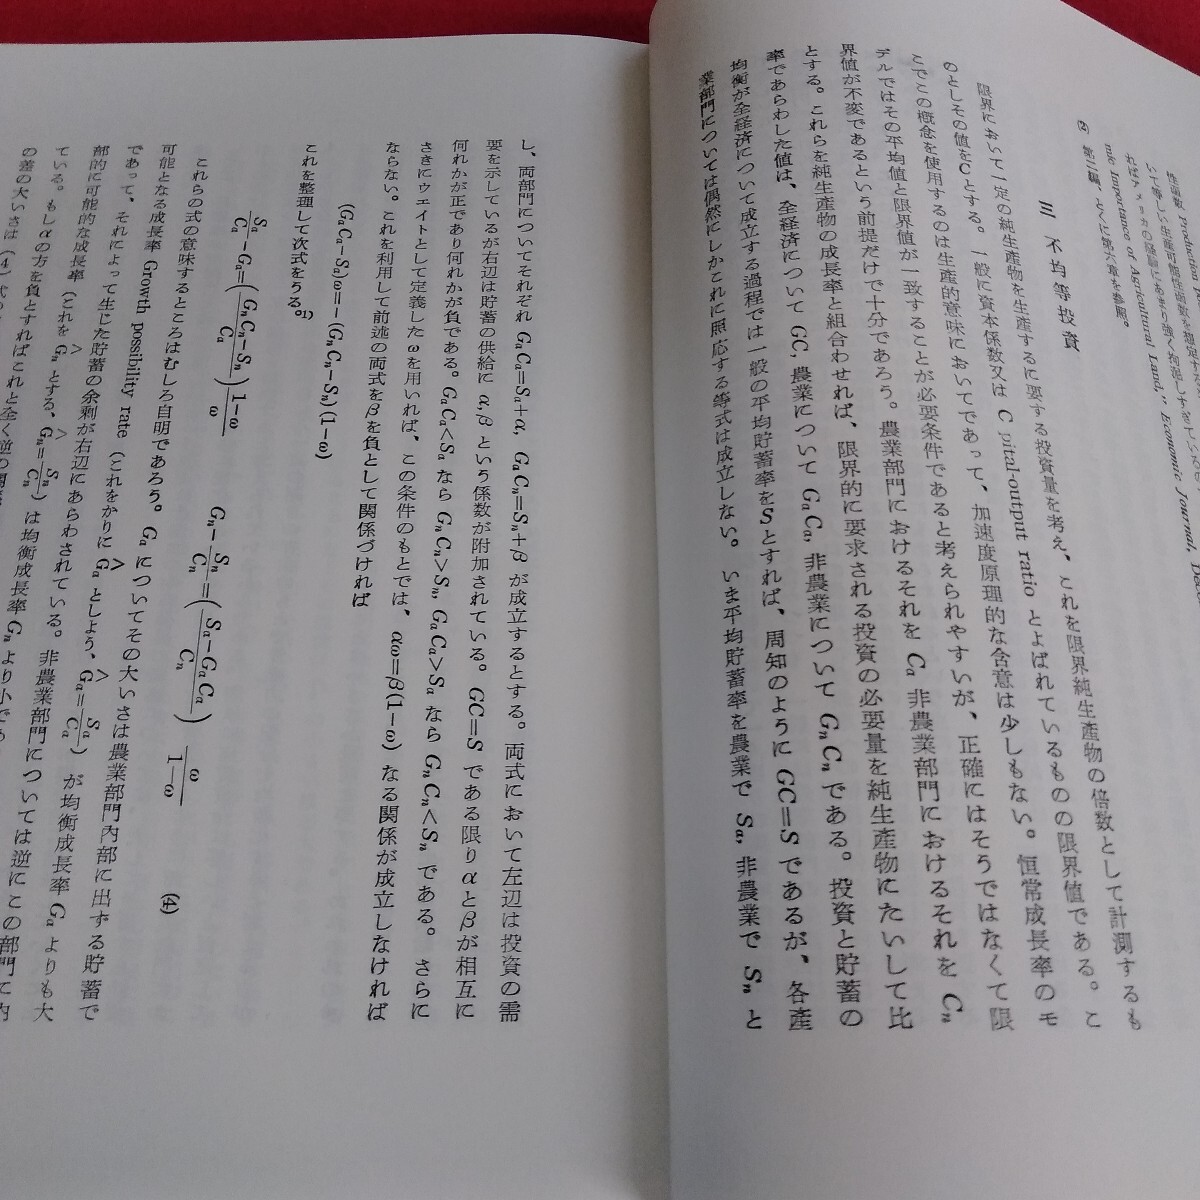 性函数 Production
いて等しい生産可能性函数を想定する
ればアメリカの経験にあまり強く拘泥しすぎ
mic Importance of Agricultural Land,” Economic Journal, De
(2) 第二編、とくに第六章を参照。
三 不均等投資
限界において一定の純生産物を生産するに要する投資量を考え、これを限界純生産物の倍数として計測するも
のとしその値をCとする。一般に資本係数又は C pital-output ratio とよばれているものの限界値である。こ
こでこの概念を使用するのは生産的意味においてであって、加速度原理的な含意は少しもない。恒常成長率のモ
デルではその平均値と限界値が一致することが必要条件であると考えられやすいが、正確にはそうではなくて限
界値が不変であるという前提だけで十分であろう。農業部門におけるそれを Ca 非農業部門におけるそれを Cn
とする。これらを純生産物の成長率と組合わせれば、限界的に要求される投資の必要量を純生産物にたいして比
率であらわした値は、全経済について GC, 農業について GaCa, 非農業について GnCn である。投資と貯蓄の
均衡が全経済について成立する過程では一般の平均貯蓄率をSとすれば、周知のように GC=S であるが、各産
業部門については偶然にしかこれに照応する等式は成立しない。いま平均貯蓄率を農業で Sa, 非農業で Sn と
し、両部門についてそれぞれ GaCa=Sa+α, GnCn=Sn+β が成立するとする。両式において左辺は投資の需
要を示しているが右辺は貯蓄の供給に α,β という係数が附加されている。GC=S である限り α と β が相互に
何れかが正であり何れかが負である。GaCa<Sa なら GnCn>Sn, GaCa>Sa なら GnCn<Sn である。さらに
さきにウェイトとして定義した ω を用いれば、この条件のもとでは、αω=β(1−ω) なる関係が成立しなければ
ならない。これを利用して前述の両式を β を負として関係づければ
(GaCa−Sa)ω=−(GnCn−Sn)(1−ω)
これを整理して次式をうる。1)
Sa/Ca−Ga=((GnCn−Sn)/Ca)(1−ω)/ω  Gn−Sn/Cn=((Sa−GaCa)/Cn) ω/(1−ω)  (4)
これらの式の意味するところはむしろ自明であろう。Ga についてその大いさは農業部門内部に出ずる貯蓄で
可能となる成長率 Growth possibility rate (これをかりに Ĝa としよう、Ĝa=Sa/Ca) が均衡成長率 Ga よりも大
であって、それによって生じた貯蓄の余剰が右辺にあらわされている。非農業部門については逆にこの部門で内
部的に可能的な成長率 (これを Ĝn とする、Ĝn=Sn/Cn) は均衡成長率 Gn より小であ
ている。もし α の方を負とすればこれと全く逆の関係
の差の大いさは (4) 式の